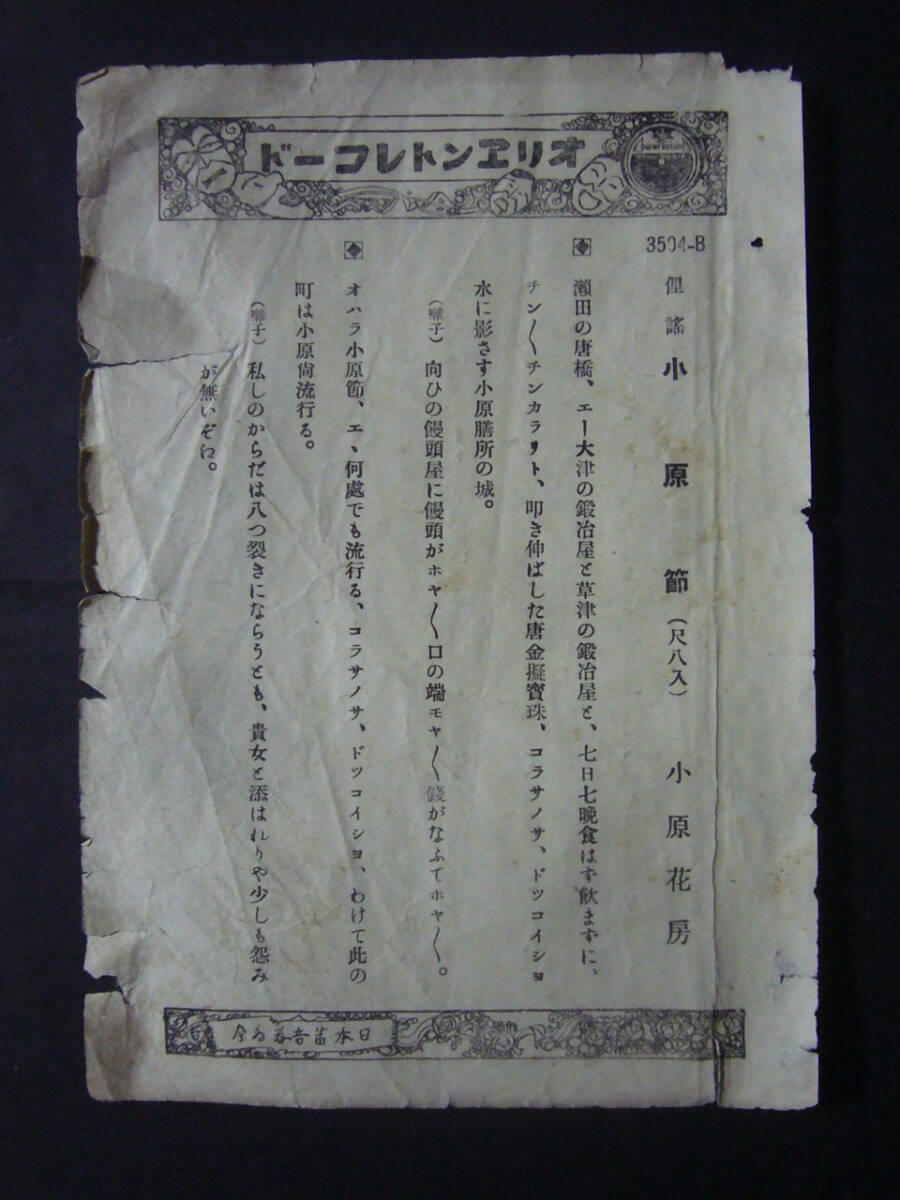 オリエントレコード
3504-B
俚謠 小原節（尺八入） 小原花房
瀬田の唐橋、エー大津の鍛冶屋と草津の鍛冶屋と、七日七晩食はず飲まずに、
チン〳〵チンカラリト、叩き伸ばした唐金擬寳珠、コラサノサ、ドツコイシヨ
水に影さす小原膳所の城。
（囃子）向ひの饅頭屋に饅頭がホヤ〳〵口の端モヤ〳〵錢がなふてホヤ〳〵。
オハラ小原節、エヽ何處でも流行る、コラサノサ、ドツコイシヨ、わけて此の
町は小原尙流行る。
（囃子）私しのからだは八つ裂きにならうとも、貴女と添はれりや少しも怨み
が無いぞわ。
日本蓄音器